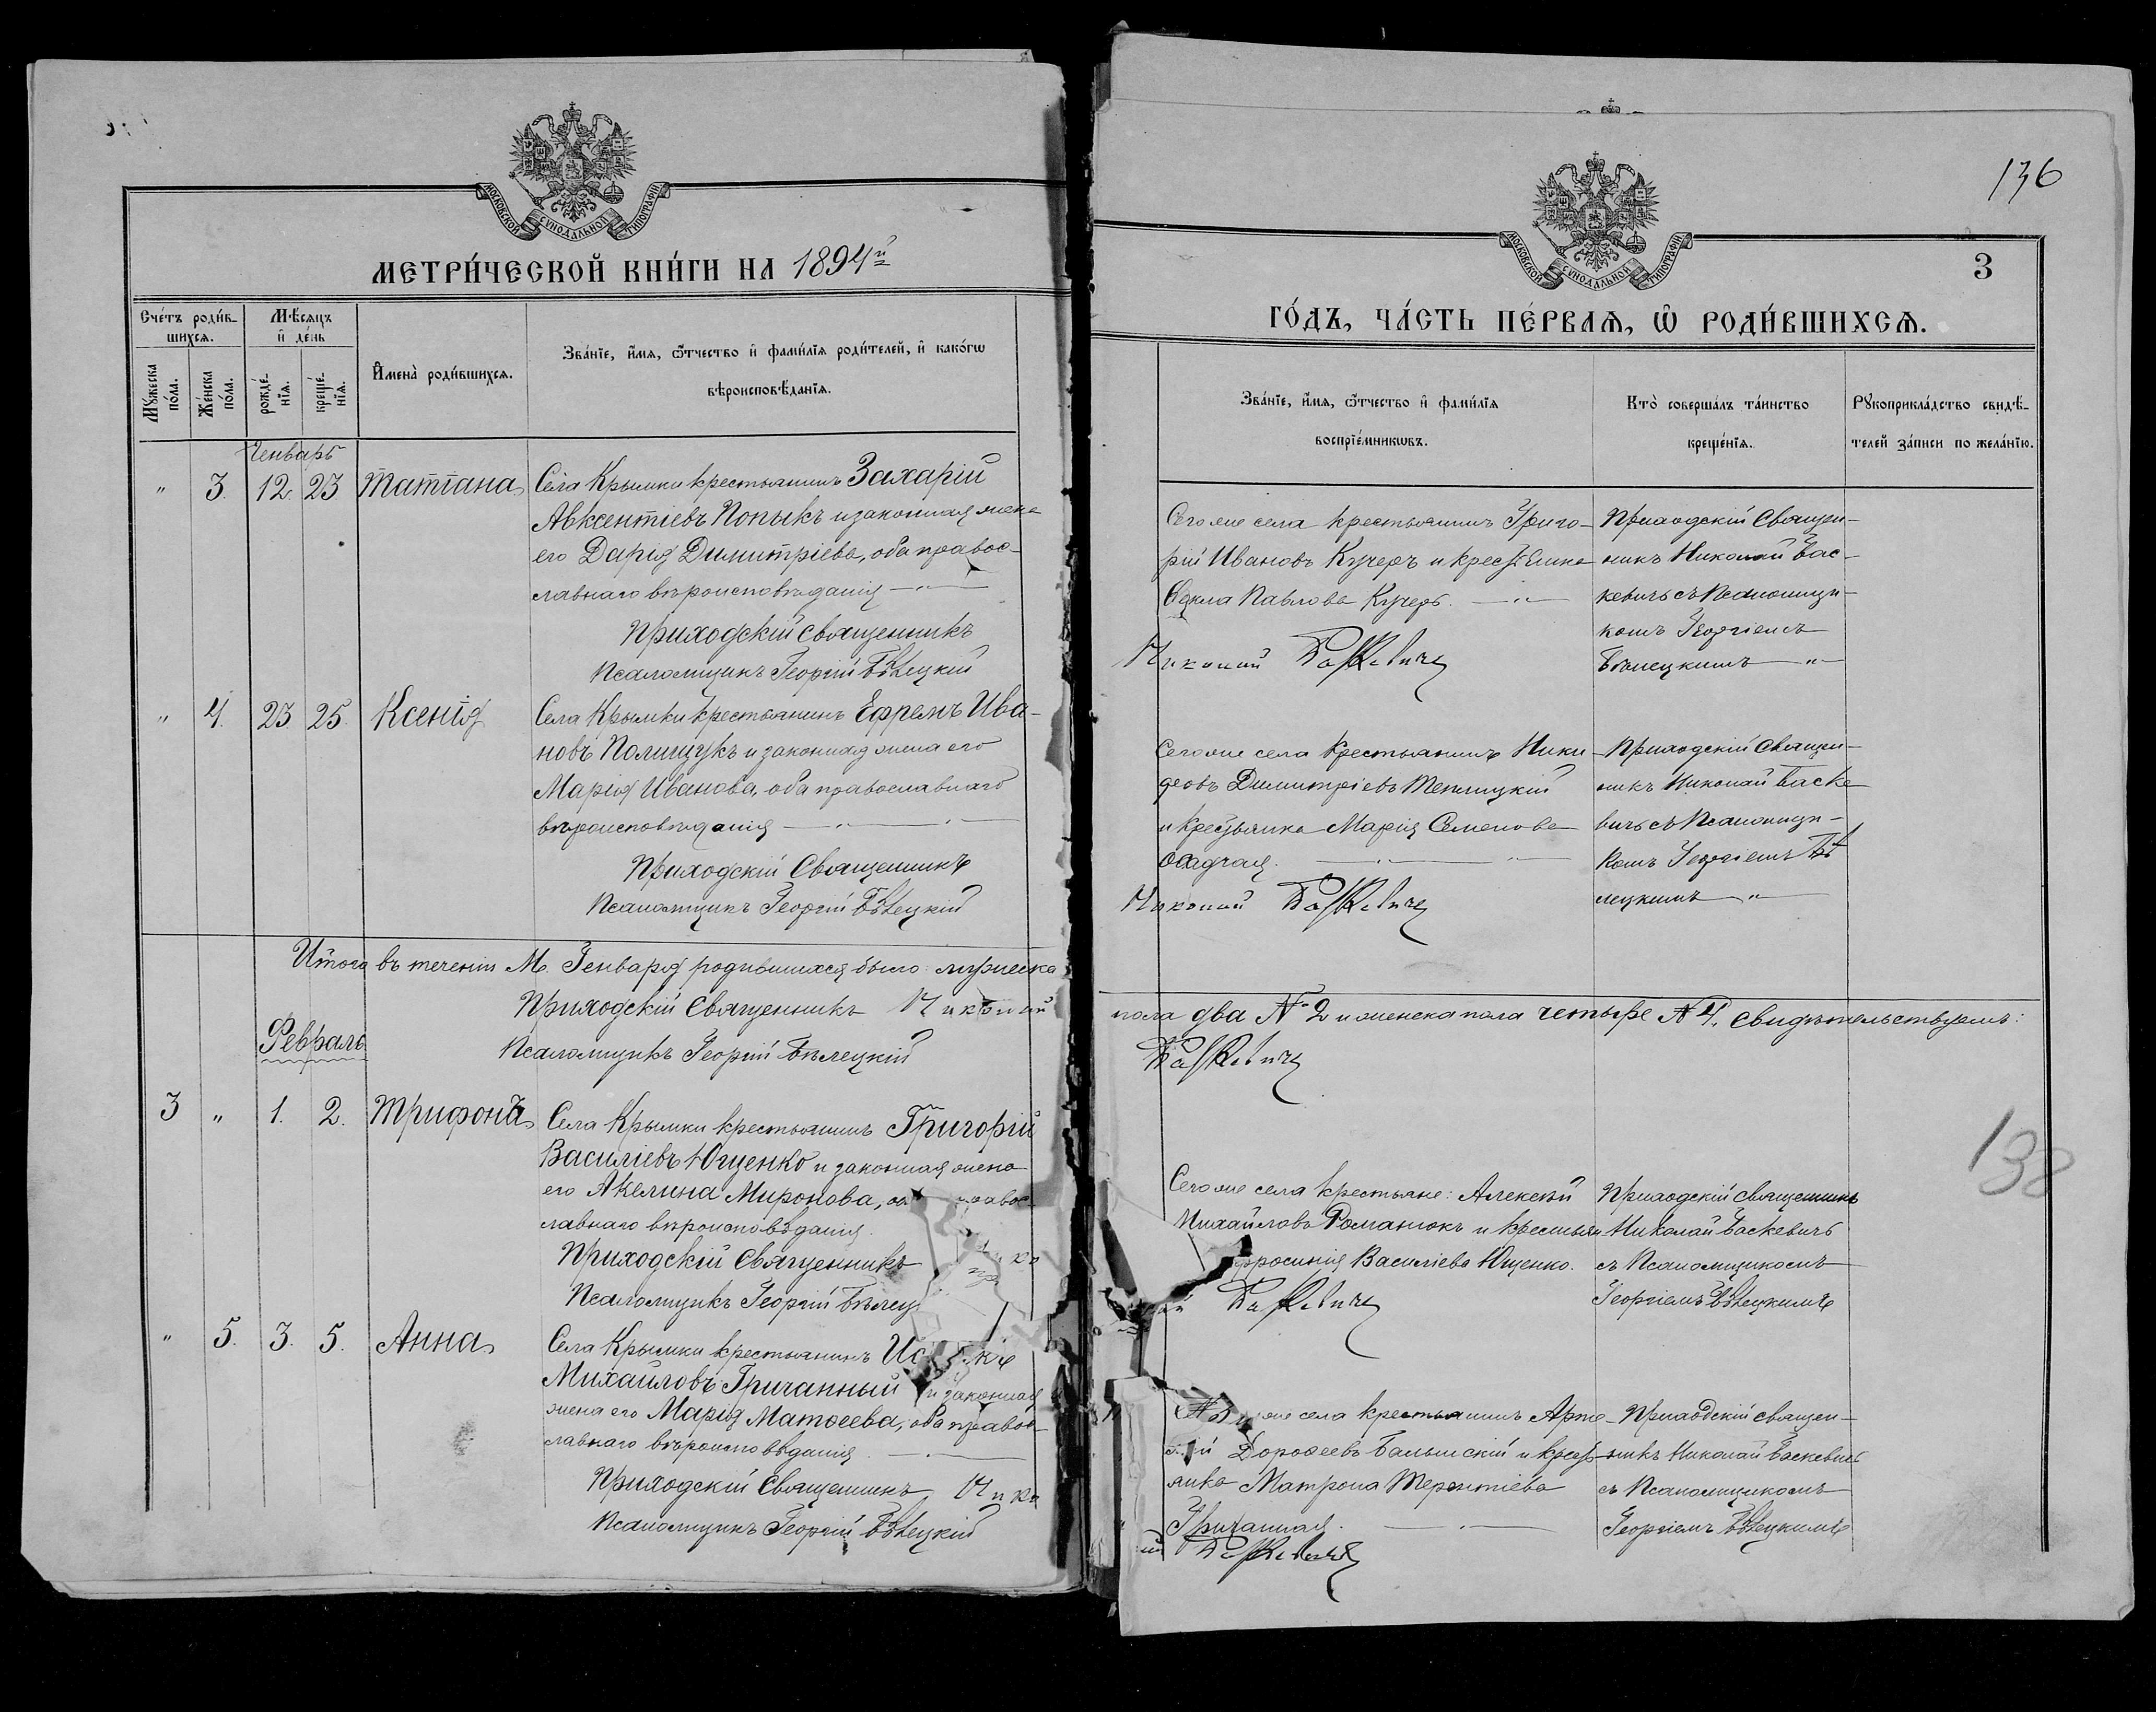 МОСКОВСКОЙ СѴНОДАЛЬНОЙ ТИПОГРАФІИ
МЕТРИ́ЧЕСКОЙ КНИ́ГИ НА 1894й
Сче́тъ роди́в-
шихсѧ.
Мѣ́сяцъ
и҆ де́нь
Мꙋ́жеска
по́ла.
Же́нска
по́ла.
рожде́-
нїѧ.
креще́-
нїѧ.
И҆мена̀ роди́вшихсѧ.
Зва́нїе, и҆́мѧ, ѻ҆́тчество и҆ фами́лїѧ роди́телей, и҆ како́гѡ
вѣроисповѣ́данїѧ.
Генварь
" 3. 12. 23 Татіана
Села Крымки крестьянинъ Захарій
Авксентіевъ Попыкъ и законная жена
его Дарія Димитріева, оба правос-
лавнаго вѣроисповѣданія
Приходскій Священникъ
Псаломщикъ Георгій Бѣлецкій
" 4. 23. 25. Ксенія
Села Крымки крестьянинъ Ефремъ Ива-
новъ Полищукъ и законная жена его
Марія Иванова, оба православнаго
вѣроисповѣданія
Приходскій Священникъ
Псаломщикъ Георгій Бѣлецкій
Итого въ теченіи М. Генваря родившихся было: мужеска
Приходскій Священникъ Николай
Февраль
Псаломщикъ Георгій Бѣлецкій
3 " 1. 2. Трифонъ
Села Крымки крестьянинъ Григорій
Василіевъ Ющенко и законная жена
его Акелина Миронова, правос-
лавнаго вѣроисповѣданія.
Приходскій Священникъ
Псаломщикъ Георгій Бѣлец
" 5. 3. 5. Анна
Села Крымки крестьянинъ
Михаиловъ Гричанный и законная
жена его Марія Матѳеева, оба правос-
лавнаго вѣроисповѣданія.
Приходскій Священникъ Нико
Псаломщикъ Георгій Бѣлецкій
136
МОСКОВСКОЙ СѴНОДАЛЬНОЙ ТИПОГРАФІИ
3
ГО́ДЪ, ЧА́СТЬ ПЕ́РВАЯ, Ѡ҆ РОДИ́ВШИХСѦ.
Зва́нїе, и҆́мѧ, ѻ҆́тчество и҆ фами́лїѧ
воспрїе́мникѡвъ.
Кто̀ соверша́лъ та́инство
креще́нїѧ.
Рꙋкоприкла́дство свидѣ́-
телей за́писи по жела́нїю.
Того же села крестьянинъ Григо-
рій Ивановъ Кучеръ и крестьянка
Ѳекла Павлова Кучеръ.
Николай Баскевичъ
Приходскій Священ-
никъ Николай Бас-
кевичъ съ Псаломщи-
комъ Георгіемъ
Бѣлецкимъ
Того же села крестьянинъ Ники-
форъ Димитріевъ Теплицкій
и крестьянка Марія Семенова
Осадчая.
Николай Баскевичъ
Приходскій Священ-
никъ Николай Баске
вичъ съ Псаломщи-
комъ Георгіемъ Бѣ
лецкимъ
пола два № 2 и женска пола четыре № 4. Свидѣтельствуемъ:
Баскевичъ
138
Того же села крестьяне: Алексѣй
Михайловъ Романюкъ и крестьян
фросинія Василіева Ющенко.
Баскевичъ
Приходскій Священникъ
Николай Баскевичъ
съ Псаломщикомъ
Георгіемъ Бѣлецкимъ
же села крестьянинъ Арте-
Дороѳеевъ Балынскій и кресть-
янка Матрона Терентіева
Гричанная.
Баскевичъ
Приходскій Священ-
никъ Николай Баскевичъ
съ Псаломщикомъ
Георгіемъ Бѣлецкимъ